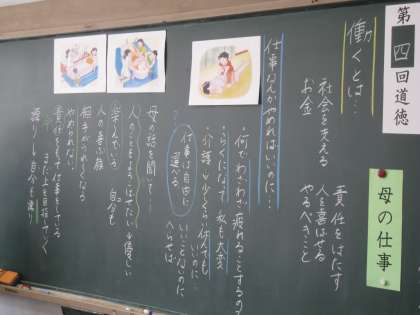 第四回道徳
母の仕事
働くとは…
社会を支える
お金
責任をはたす
人を喜ばせる
やるべきこと
仕事なんかやめればいいのに…
何でわざわざ疲れることするの
らくになって私も大変
介護 少くらい休んでも
いいのに…
仕事は自由に
選べる
いいことないのに
母の話を聞いて…
優しい
楽しんでいる 自分も
人の喜ぶ顔
相手がうれしくなる
やめられない
責任をもって仕事をしている
また上を目指していく
誇り 自分も誇り